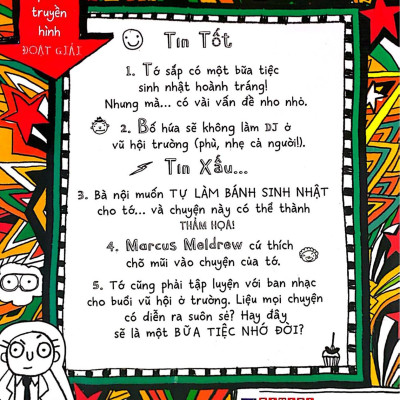 truyền
hình
ĐOẠT GIẢI
Tin Tốt
1. Tớ sắp có một bữa tiệc
sinh nhật hoành tráng!
Nhưng mà... có vài vấn đề nho nhỏ.
2. Bố hứa sẽ không làm DJ ở
vũ hội trường (phù, nhẹ cả người!).
Tin Xấu...
3. Bà nội muốn TỰ LÀM BÁNH SINH NHẬT
cho tớ... và chuyện này có thể thành
THẢM HỌA!
4. Marcus Meldrew cứ thích
chõ mũi vào chuyện của tớ.
5. Tớ cũng phải tập luyện với ban nhạc
cho buổi vũ hội ở trường. Liệu mọi chuyện
có diễn ra suôn sẻ? Hay đây
sẽ là một BỮA TIỆC NHỚ ĐỜI?